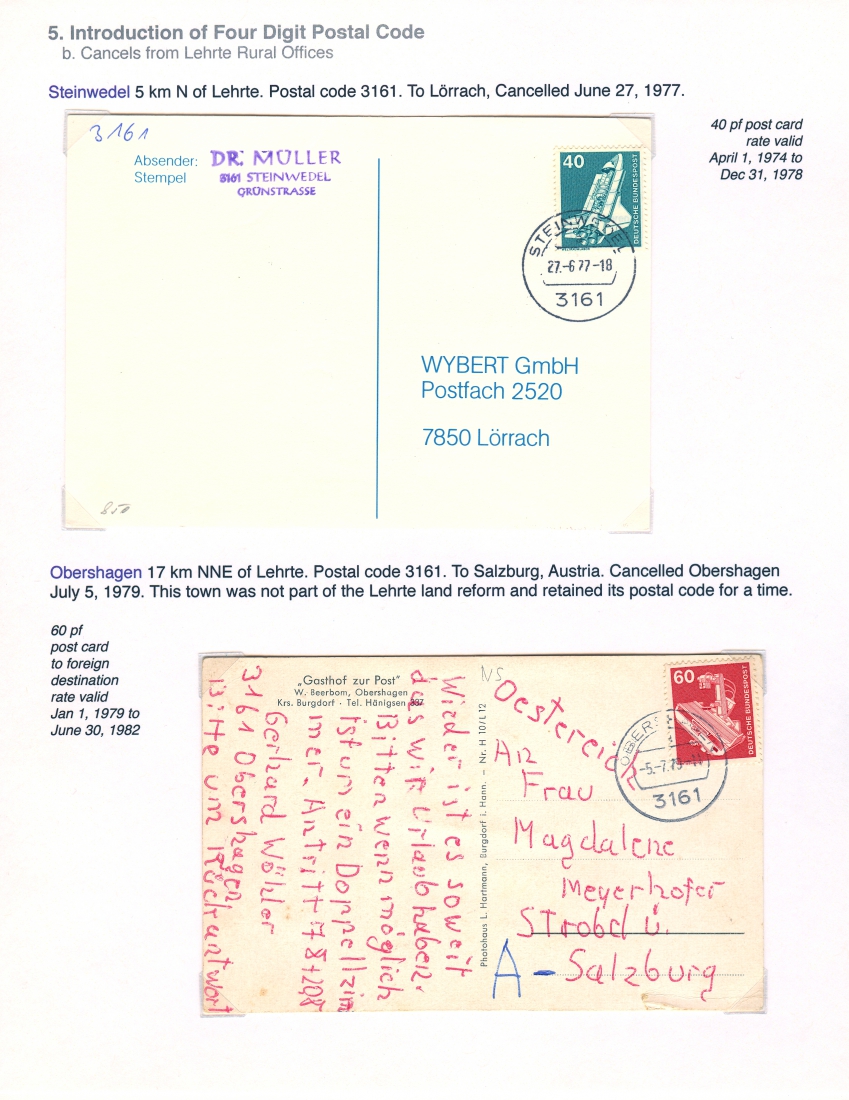 5. Introduction of Four Digit Postal Code
b. Cancels from Lehrte Rural Offices
Steinwedel 5 km N of Lehrte. Postal code 3161. To Lörrach, Cancelled June 27, 1977.
40 pf post card
rate valid
April 1, 1974 to
Dec 31, 1978
3161
Absender:
Stempel
DR. MÜLLER
3161 STEINWEDEL
GRÜNSTRASSE
40
DEUTSCHE BUNDESPOST
STEINWEDEL
27.-6 77-18
3161
WYBERT GmbH
Postfach 2520
7850 Lörrach
850
Obershagen 17 km NNE of Lehrte. Postal code 3161. To Salzburg, Austria. Cancelled Obershagen
July 5, 1979. This town was not part of the Lehrte land reform and retained its postal code for a time.
60 pf
post card
to foreign
destination
rate valid
Jan 1, 1979 to
June 30, 1982
„Gasthof zur Post"
W. Beerbom, Obershagen
Krs. Burgdorf · Tel. Hänigsen 337
Wieder ist es soweit
das wir Urlaub haben.
Bitten wenn möglich
ist um ein Doppellzim
mer. Antritt
Gerhard Wöhler
3161 Obershagen
Bitte um Rückantwort
Photohaus L. Hartmann, Burgdorf i. Hann. – Nr. H 10/L 12
NS
Oestereich
60
DEUTSCHE BUNDESPOST
-5.-7.79-
3161
An
Frau
Magdalene
Meyerhofer
Strobl ü.
A - Salzburg